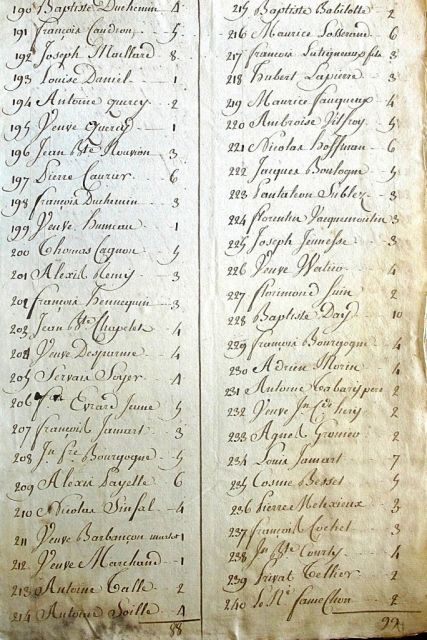 190 Baptiste Duchemin 4
191 François Caudron 5
192 Joseph Maillard 8
193 Louise Daniel 1
194 Antoine Quercy 2
195 Veuve Quercy 1
196 Jean Bte Rouvion 3
197 Pierre 6
198 François Duchemin 3
199 Veuve Humeau 1
200 Thomas Cagnon 5
201 Alexis Remy 3
201 françois hennequin 3
203 Jean Bte Chapelet 4
204 Veuve 4
205 Servais Soyer 4
206 Evrard Jeune 5
207 françois Jamart 3
208 Jn fre Bourgogne 5
209 Alexis Payette 6
210 Nicolas Sinfal 4
211 Veuve Barbancon 1
212 Veuve Marchand 1
213 Antoine Calle 2
214 Antoine Soille 4
88
215 Baptiste Babilotte 2
216 Maurice 6
217 françois fils 3
218 hubert Lapierre 3
219 Maurice 4
220 Ambroise 5
221 Nicolas hoffman 6
222 Jacques Boulogne 5
223 Pantaleon Sublez 3
224 florentin Jacquemoutin 3
225 Joseph Jennesse 3
226 Veuve 4
227 florimond Juin 2
228 Baptiste 10
229 françois Bourgogne 4
230 Adrien Morin 4
231 Antoine pere 2
232 Veuve 2
233 Agnes 2
234 Louis Jamart 7
235 Cosme Besset 5
236 Pierre 3
237 françois Cochet 3
238 Jn Bte Courty 4
239 Privat Tellier 2
240 Le famechon 2
99